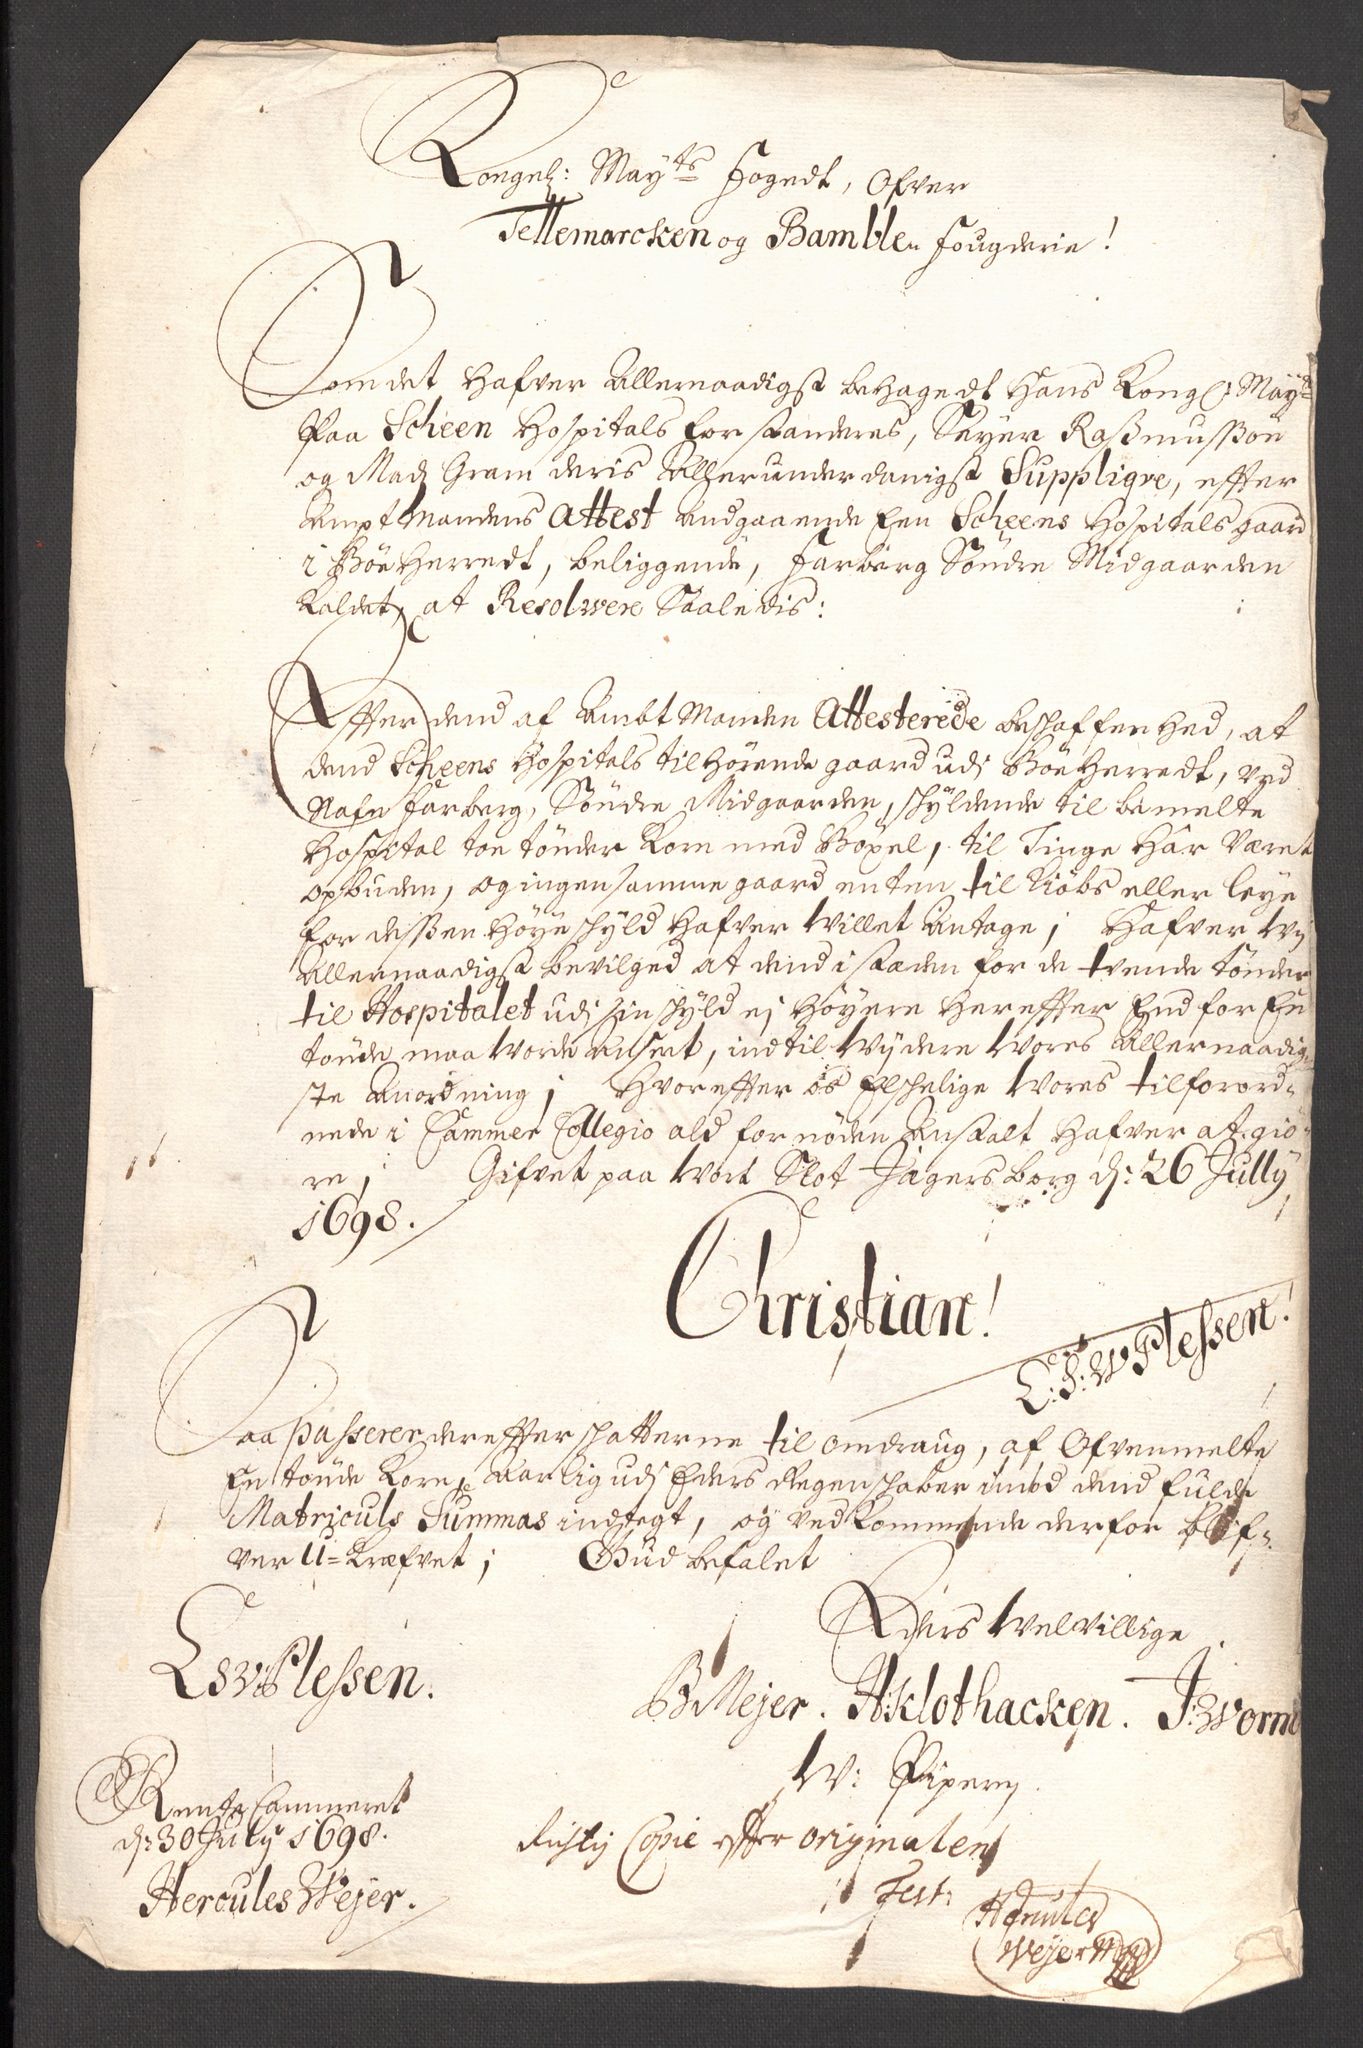 Kongel: May<sup>ts</sup> Fogedt, Ofver
Tellemarcken og Bamble Fougderie!
Som det Hafver Allernaadigst behagedt Hans Kongl: May<sup>ts</sup>
Paa Scheen Hospitals forstanderes, Seyer Raßmußøn
og Mads Gram deris Allerunderdanigst Suppliqve, effter
Ampt Mandens Attest andgaaende Een Scheens Hospitals gaard
i Böe Herredt, beliggende, Farberg Söndre Midgaarden
kaldet, at Resolvere Saaledis:
Effter dend af Ambt Manden Attesterede beschaffenhed, at
dend Scheens Hospitals tilhörende gaard udj Böe Herredt, ved
Nafn Farberg, Söndre Midgaarden, schyldende til bemelte
Hospital toe tönder Korn med Böxel, til Tinge har Været
opbuden, og ingen samme gaard enten til Kiöbs eller leye
for deßen Höye schyld Hafver Villet Antage; Hafver Wj
Allernaadigst bevilged at dend i stæden for de tvende tönder
til Hospitalet udj sin schyld ej Höyere Hereffter End for En
tönde maa Worde anseet, indtil Wydere Wores Allernaadig-
ste Anordning; Hvoreffter os Elschelige Wores tilforord-
nede i Cammer Collegio ald fornöden Anstalt Hafver at giö-
re; Gifvet paa Wort Slot Jägersborg d: 26 Jully
1698.
Christian!
C: S: W Plessen!
Saa passerer dereffter schatterne til omdraug, af Ofvenmelte
En tönde Korn, Aarlig udj Eders Regenschaber imod dend fulde
Matriculs Summas indtegt, og vedkommende derfor blif-
ver U=kræfvet; Gud befalet
Eders Welvillige
C S W Plessen.
B Mejer. H: Klothacken. J: Worm
W: Pipery
Rente Cammeret
d: 30 July 1698.
Hercules Wejer.
Rigtig Copie effter originalen
Test:
Hercules
Weyer